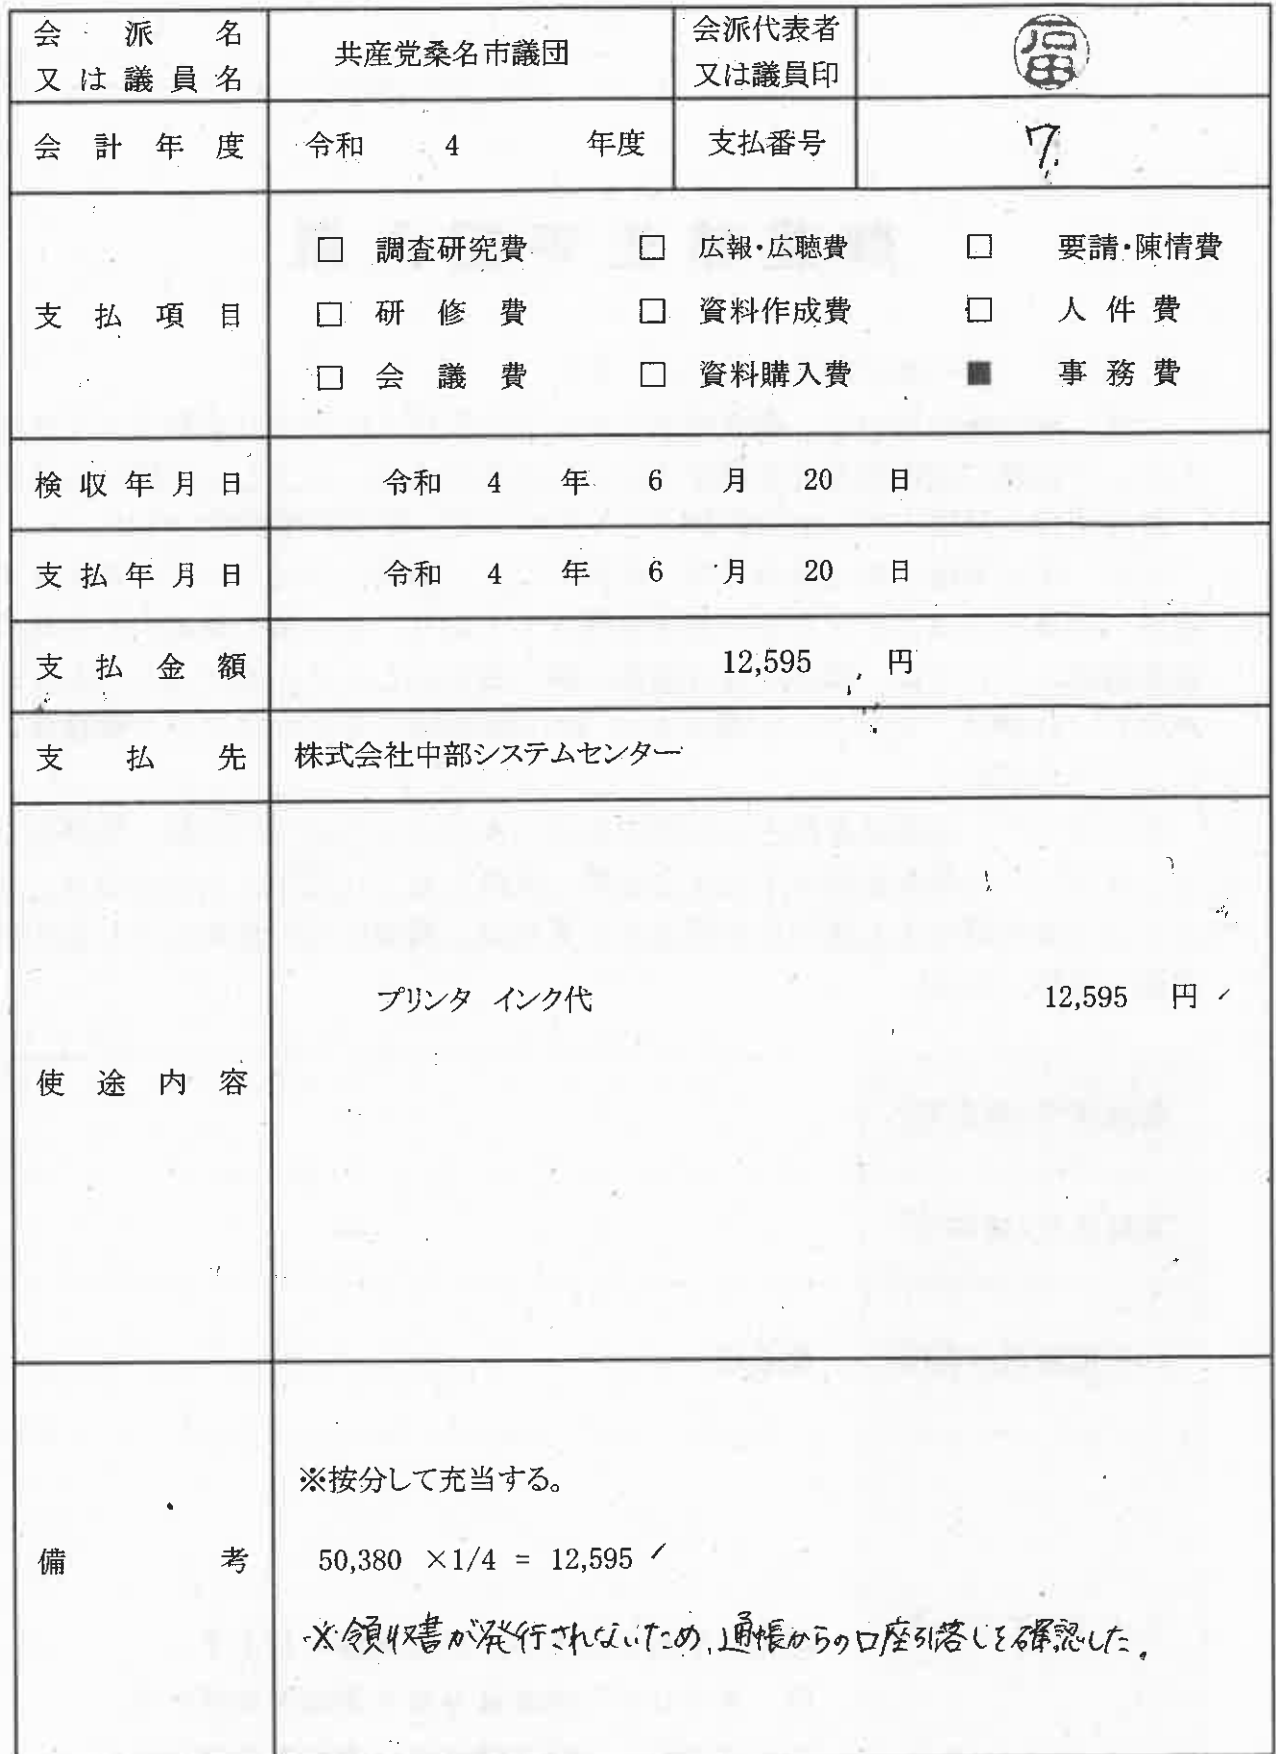 会派名 共産党桑名市議団 会派代表者
又は議員名 又は議員印
会計年度 令和 4 年度 支払番号 7
□ 調査研究費 □ 広報・広聴費 □ 要請・陳情費
支払項目 □ 研修費 □ 資料作成費 □ 人件費
□ 会議費 □ 資料購入費 ■ 事務費
検収年月日 令和 4 年 6 月 20 日
支払年月日 令和 4 年 6 月 20 日
支払金額 12,595 円
支払先 株式会社中部システムセンター
プリンタ インク代 12,595 円
使途内容
※按分して充当する。
備考 50,380 ×1/4 = 12,595
※領収書が発行されないため、通帳からの口座引落しを確認した。